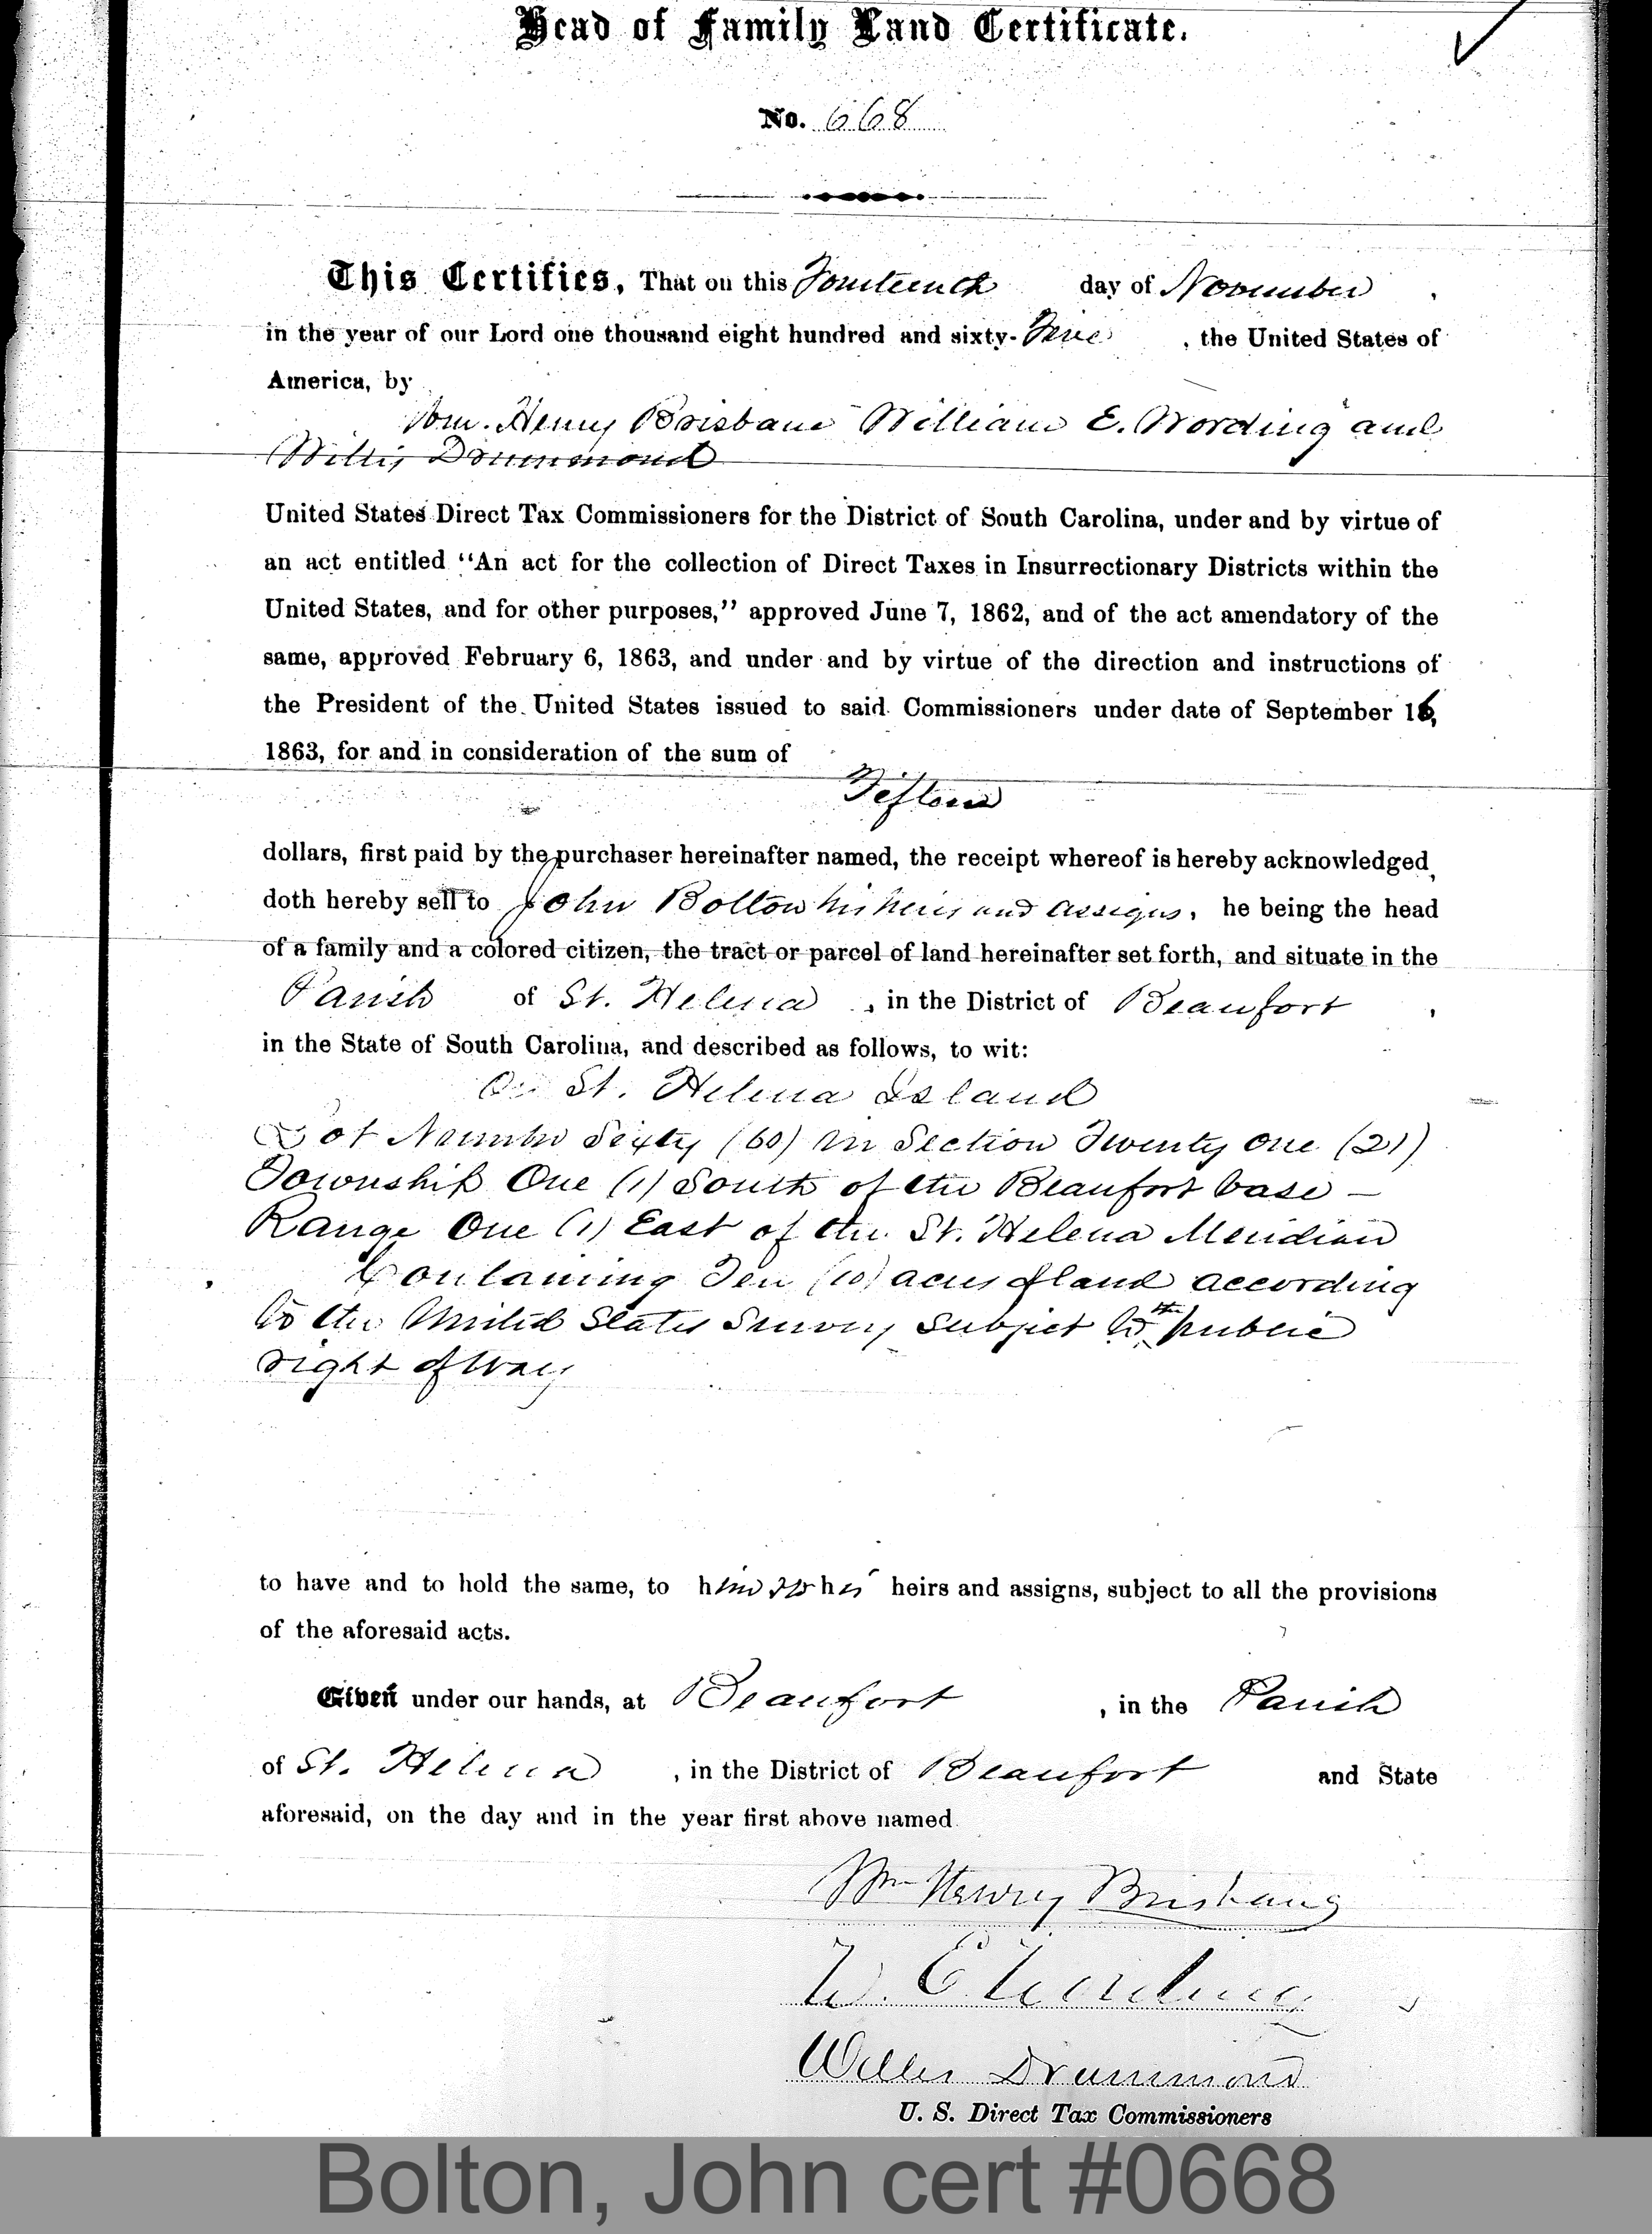 Head of Family Land Certificate.
No. 668
This Certifies, That on this Fourteenth day of November,
in the year of our Lord one thousand eight hundred and sixty-Five, the United States of
America, by
Wm. Henry Brisbane William E. Wording and
Willis Drummond
United States Direct Tax Commissioners for the District of South Carolina, under and by virtue of
an act entitled "An act for the collection of Direct Taxes in Insurrectionary Districts within the
United States, and for other purposes," approved June 7, 1862, and of the act amendatory of the
same, approved February 6, 1863, and under and by virtue of the direction and instructions of
the President of the United States issued to said Commissioners under date of September 16,
1863, for and in consideration of the sum of
Fifteen
dollars, first paid by the purchaser hereinafter named, the receipt whereof is hereby acknowledged,
doth hereby sell to John Bolton his heirs and assigns, he being the head
of a family and a colored citizen, the tract or parcel of land hereinafter set forth, and situate in the
Parish of St. Helena, in the District of Beaufort,
in the State of South Carolina, and described as follows, to wit:
On St. Helena Island
Lot Number Sixty (60) in Section Twenty one (21)
Township One (1) South of the Beaufort base –
Range One (1) East of the St. Helena Meridian
Containing Ten (10) acres of land according
to the United States Survey subject to the public
right of way
to have and to hold the same, to him his heirs and assigns, subject to all the provisions
of the aforesaid acts.
Given under our hands, at Beaufort, in the Parish
of St. Helena, in the District of Beaufort and State
aforesaid, on the day and in the year first above named.
Wm Henry Brisbane
W. E. Wording
Willis Drummond
U. S. Direct Tax Commissioners
Bolton, John cert #0668